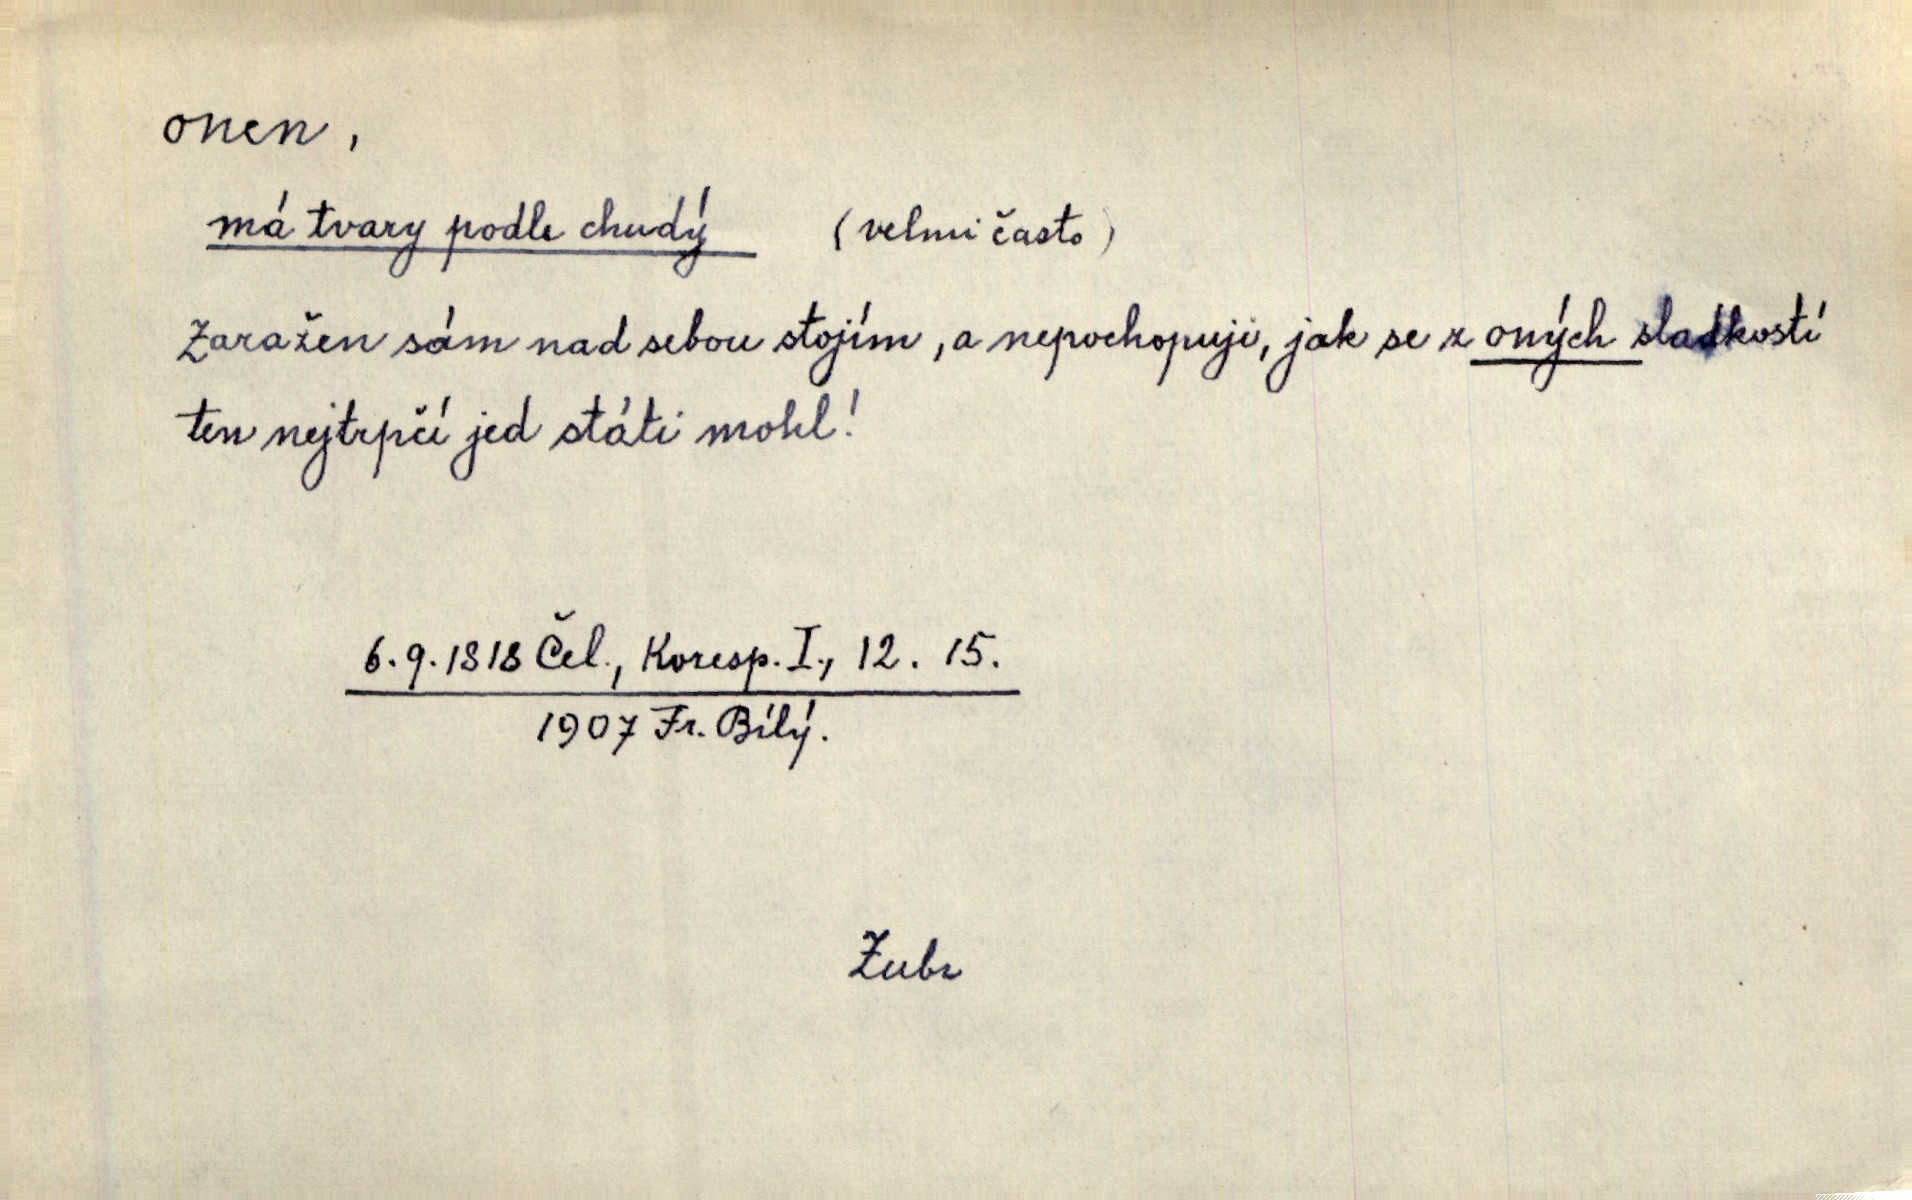 onen,
má tvary podle chudý (velmi často)
Zaražen sám nad sebou stojím, a nepochopuji, jak se z oných sladkostí
ten nejtrpčí jed státi mohl!
6.9.1818 Čel., Koresp. I., 12. 15.
1907 Fr. Bílý.
Zubr